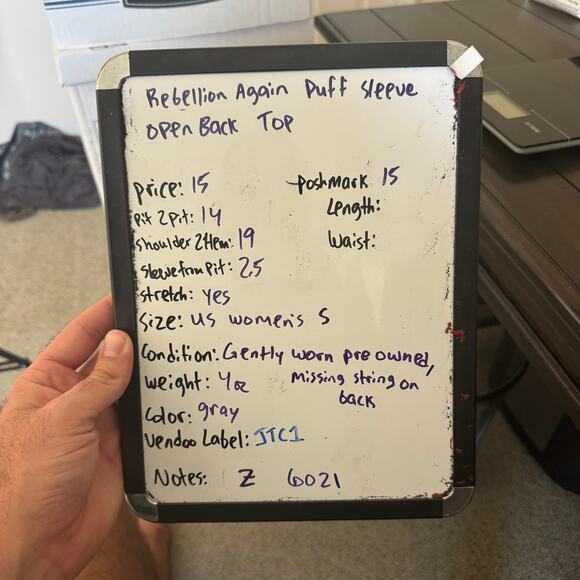 Rebellion Again Puff Sleeve
Open Back Top
Price: 15
Poshmark 15
Pit 2 Pit: 14
Length:
Shoulder 2 Hem: 19
Waist:
Sleeve from Pit: 2.5
Stretch: yes
Size: US women's S
Condition: Gently worn preowned,
missing string on
back
Weight: 4oz
Color: gray
Vendoo Label: JTC1
Notes: Z 6021